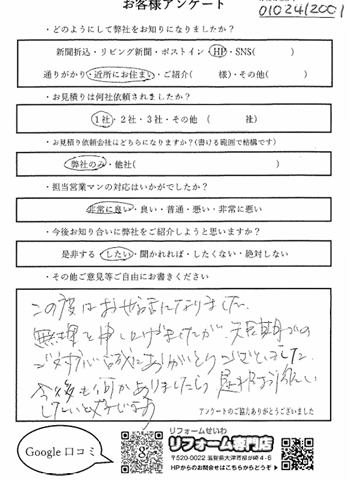 お客様アンケート
01024120001
・どのようにして弊社をお知りになりましたか?
新聞折込・リビング新聞・ポストイン・HP・SNS( )
通りがかり・近所にお住まい・ご紹介( 様)・その他( )
・お見積りは何社依頼されましたか?
1社・2社・3社・その他( 社)
・お見積り依頼会社はどちらになりますか?(書ける範囲で結構です)
弊社のみ・他社( )
・担当営業マンの対応はいかがでしたか?
非常に良い・良い・普通・悪い・非常に悪い
・今後お知り合いに弊社をご紹介しようと思いますか?
是非する・したい・聞かれれば・したくない・絶対しない
・その他ご意見等ご自由にお書きください
この度はお世話になりました。
無理を申し上げましたが、短期での
ご対応 誠にありがとうございました。
今後も何かありましたら
したいと
アンケートのご協力ありがとうございました
Google 口コミ
リフォームせいわ
リフォーム専門店
〒520-0022 滋賀県大津市柳が崎4-6
HPからのお問合せはこちらからどうぞ